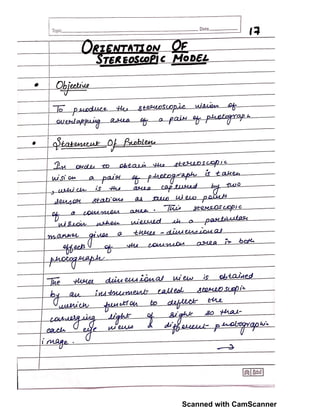 Topic
Date
17
ORIENTATION OF
STEREOSCOPIC MODEL
Objective
To produce the stereoscopic vision of
overlapping area of a pair of photograph.
Statement Of Problem
In order to obtain the stereoscopic
vision a pair of photograph is taken
, which is the area captured by two
sensor stations as two view points
of a common area. This stereoscopic
vision when viewed in a particular
manner gives a three-dimensional
effect of the common area in both
photograph.
The three dimensional view is obtained
by an instrument called stereoscope
which function to deflect the
converging light of sight so that
each eye views a different photograph
image.
Scanned with CamScanner